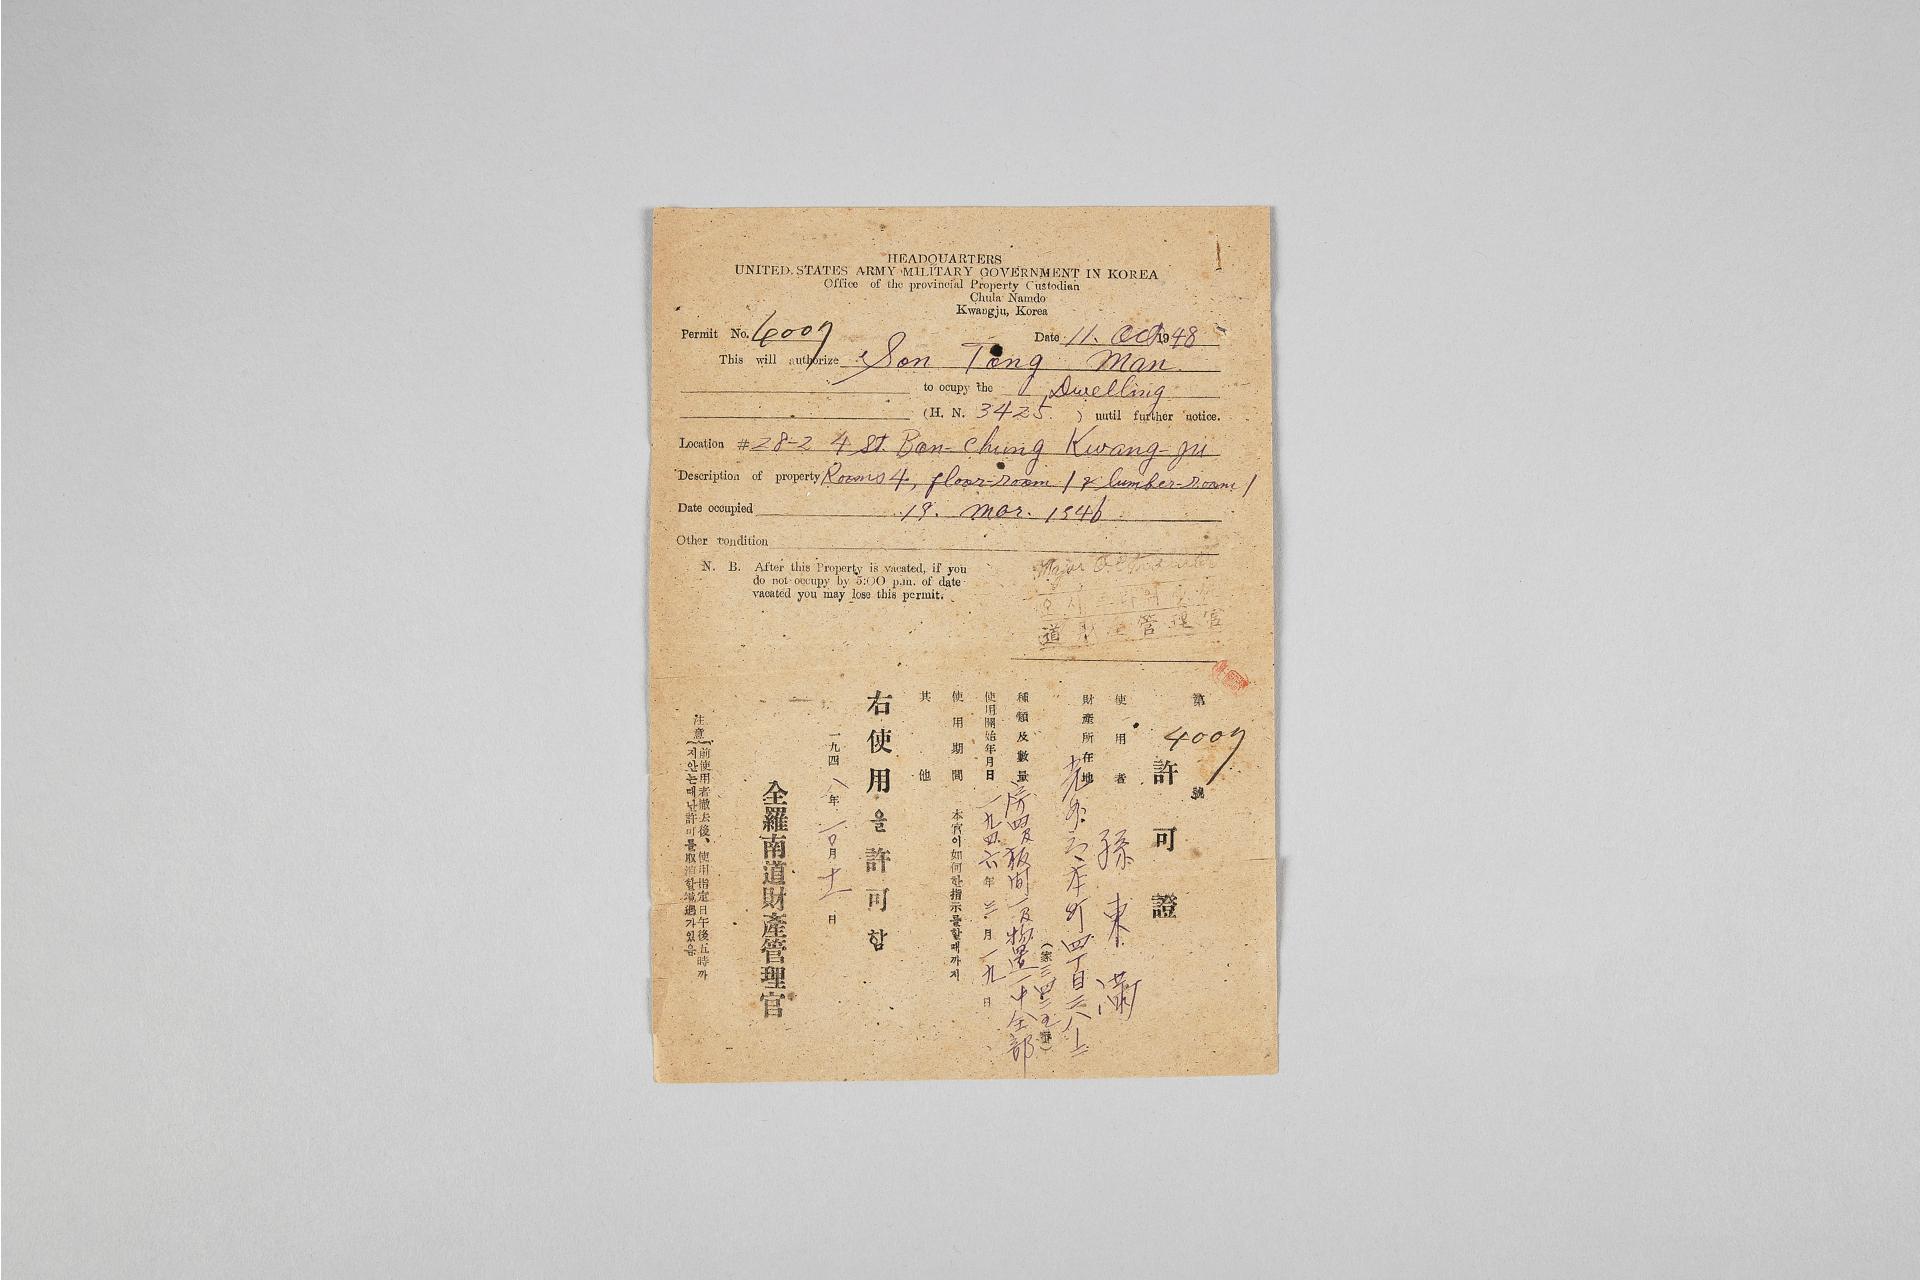 HEADQUARTERS
UNITED STATES ARMY MILITARY GOVERNMENT IN KOREA
Office of the provincial Property Custodian
Chula Namdo
Kwangju, Korea
Permit No. 4007
Date 11. Oct 1948
This will authorize Son Tong Man
to ocupy the Dwelling
(H. N. 3425.) until further notice.
Location #28-2 4 St. Bon-chung Kwang-ju
Description of property Rooms 4, floor-room 1 & lumber-room 1
Date occupied 19. Mar. 1946
Other condition
N. B. After this Property is vacated, if you
do not occupy by 5:00 p.m. of date
vacated you may lose this permit.
Major
道 管理官
第 4007 號
許可證
使用者 孫東
財産所在地 光州府本町四丁目二八ノ二
(家三四二五番)
種類及數量 房四及板間一及物置一中全部
使用開始年月日 一九四六年三月一九日
使用期間 本官이如何한指示를할때까지
其他
右使用을許可함
一九四八年一〇月十一日
全羅南道財產管理官
注意 前使用者撤去後、使用指定日午後五時까
지안는때난許可를取消할境遇가있음